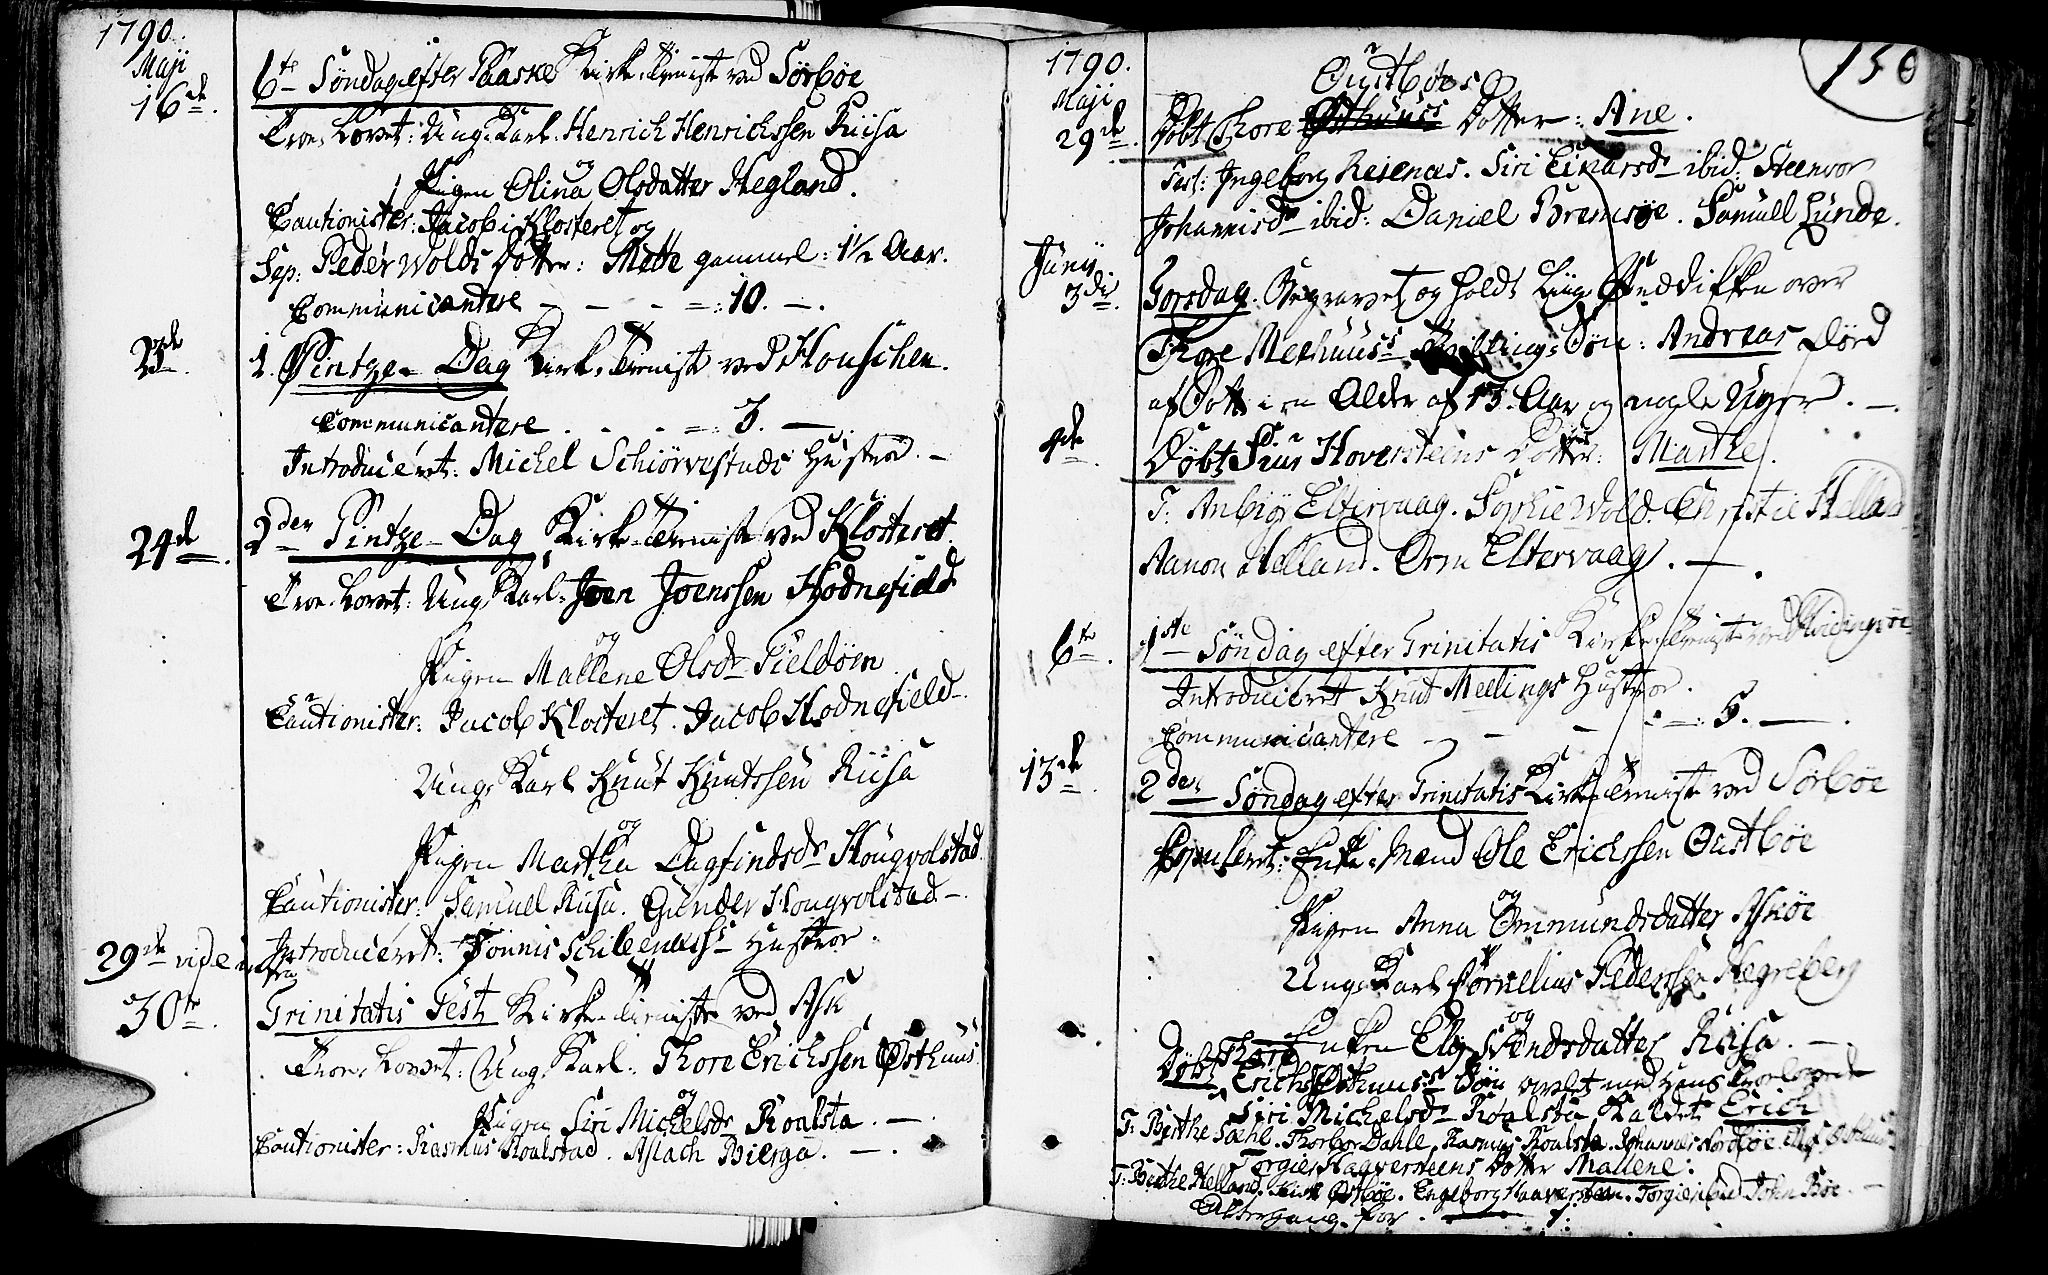 1790.
Maji
16de. 6te Søndag efter Paaske Kirke-Tienist ved Sørbøe
Troe-Lovet: Ung-Karl Henrich Henrichssen Riisa
og
Pigen Olina Olsdatter Hegland.
Cautionister: Jacob i Klosteret og
Sep: Peder Wolds Dotter: Mette gammel: 1½ Aar.
Communicantere - - - =: 10. -.
23de 1. Pintze-Dag Kirke-Tienist ved Houschen.
Communicantere . - - =: 3. -
Introduceret: Michel Schiørvestads Hustroe. -
24de 2den Pintze-Dag Kirke-Tienist ved Klosteret.
Troe-Lovet: Ung-Karl: Joen Joenssen Hodnefield
og
Pigen Mallene Olsdr Fieldøen
Cautionister: Jacob Klosteret. Jacob Hodnefield-.
Ung-Karl Knut Knutssen Riisa
og
Pigen Martha Dagfindsdr Hougvolstad.
Cautionister: Samuel Riisa. Gunder Hougvolstad-.
Introduceret: Tønnis Schileenæss Hustroe.
29de vide infra
30te. Trinitatis Fest Kirke-Tieniste ved Ask
Troe-Lovet: Ung-Karl: Thore Erichssen Østhuus.
og
Pigen Siri Michelsdr Roalsta. -
Cautionister: Rasmus Roalstad. Aslach Bierga. -.
1790.
150
Maji
Oustbøes
29de. Døbt Thore Østhuuss Dotter: Ane.
Test: Ingeborg Reienæs. Siri Einarsdr ibid: Steenvor
Johannisdr ibid: Daniel Bremsøe. Samuel Lunde.
Junij
3die. Torsdag. Begravet og holdt Liig-Prædikken over
Thore Meehuuss Søn: Andreas Død
af Sott i en Alder af 13 Aar og nogle Uger. -.
4de. Døbt Siur Hoversteens Dotter: Marthe.
T. Anbiør Eltervaag. Sophie Wold. Christie Helland
Aanon Helland. Orm Eltervaag. -.
6te. 1ste Søndag efter Trinitatis Kirke-Tieniste ved Hvidingsøe
Introduceret Knut Meelings Hustroe.
Communicantere - - - =: 5. -.
13de. 2den Søndag efter Trinitatis Kirke-Tieniste ved Sørbøe
Copuleret: Enke-Mand Ole Erichssen Oustbøe
og
Pigen Anna Ommundsdatter Askøe
Ung-Karl Cornelius Pederssen Hegreberg
og
Enken Elg Svendsdatter Riisa. -
Døbt Thore
Erichs Østhuuss Søn avlet med hans Troelovede
Siri Michelsdr Roalsta kaldet Erich
T: Berthe Sæhl. Thorbor Dahle, Rasmus Roalsta. Johannes Nordbøe Østhuus.
Torgier Haaversteens Dotter Mallene:
T: Berthe Helland. Østbøe. Engeborg Haaversteen. Torgier John Bøe. -
Altergang for. - 7.